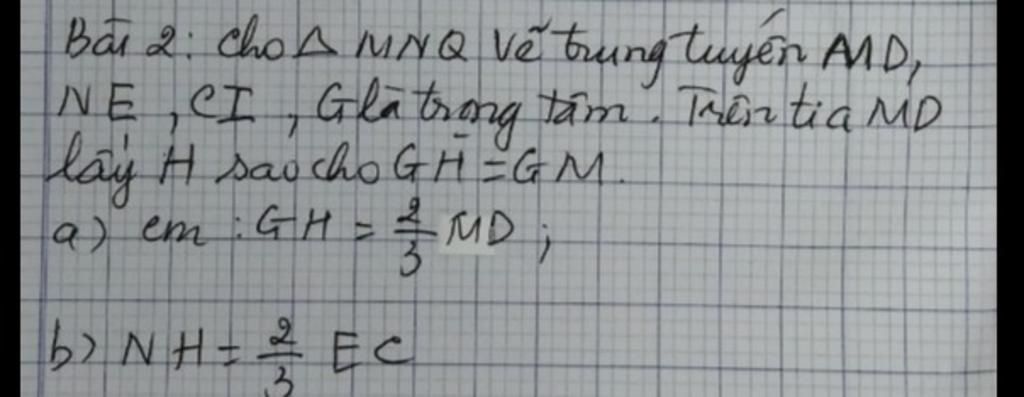 Bài 2: Cho Δ MNQ Vẽ trung tuyến MD,
NE, CI, G là trọng tâm. Trên tia MD
lấy H sao cho GH = GM.
a) cm: GH = 2/3 MD;
b) NH = 2/3 EC